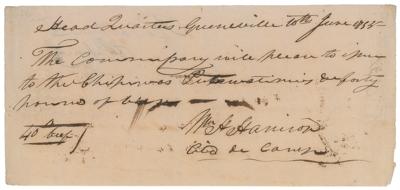 Head Quarters Greeneville 10th June 1795
The Commissary will please to issue
to the Chipiwas & Putawatimies forty
pounds of beef
40 beef
Wm H Harrison
Aid de Camp